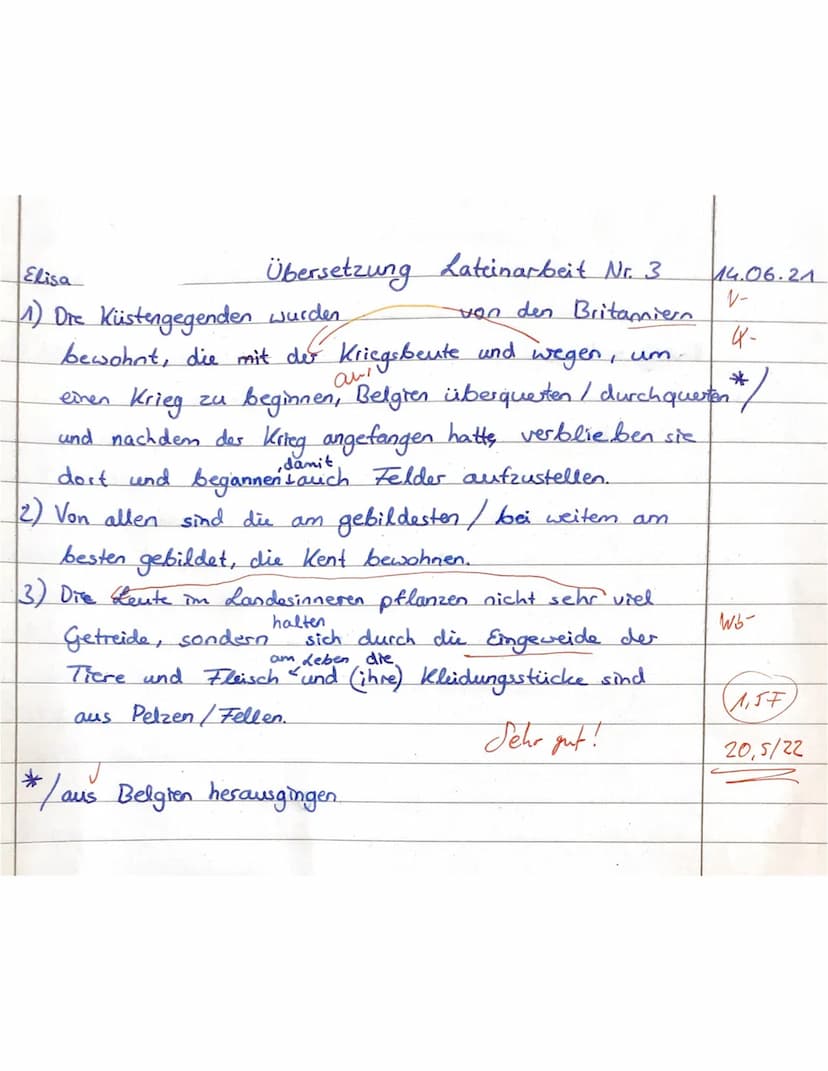 Elisa Übersetzung Lateinarbeit Nr. 3 14.06.21
1) Die Küstengegenden wurden von den Britanniern V-
bewohnt, die mit der Kriegsbeute und wegen, um 4-
aus
einen Krieg zu beginnen, Belgien überquerten / durchquerten */
und nachdem der Krieg angefangen hatte verblieben sie
, damit
dort und begannen auch Felder aufzustellen.
2) Von allen sind die am gebildesten / bei weitem am
besten gebildet, die Kent bewohnen.
3) Die Leute im Landesinneren pflanzen nicht sehr viel
halten Wb-
Getreide, sondern sich durch die Eingeweide der
am Leben die
Tiere und Fleisch und (ihre) Kleidungsstücke sind
aus Pelzen / Fellen. 1,5F
Sehr gut! 20,5/22
*/ aus Belgien herausgingen